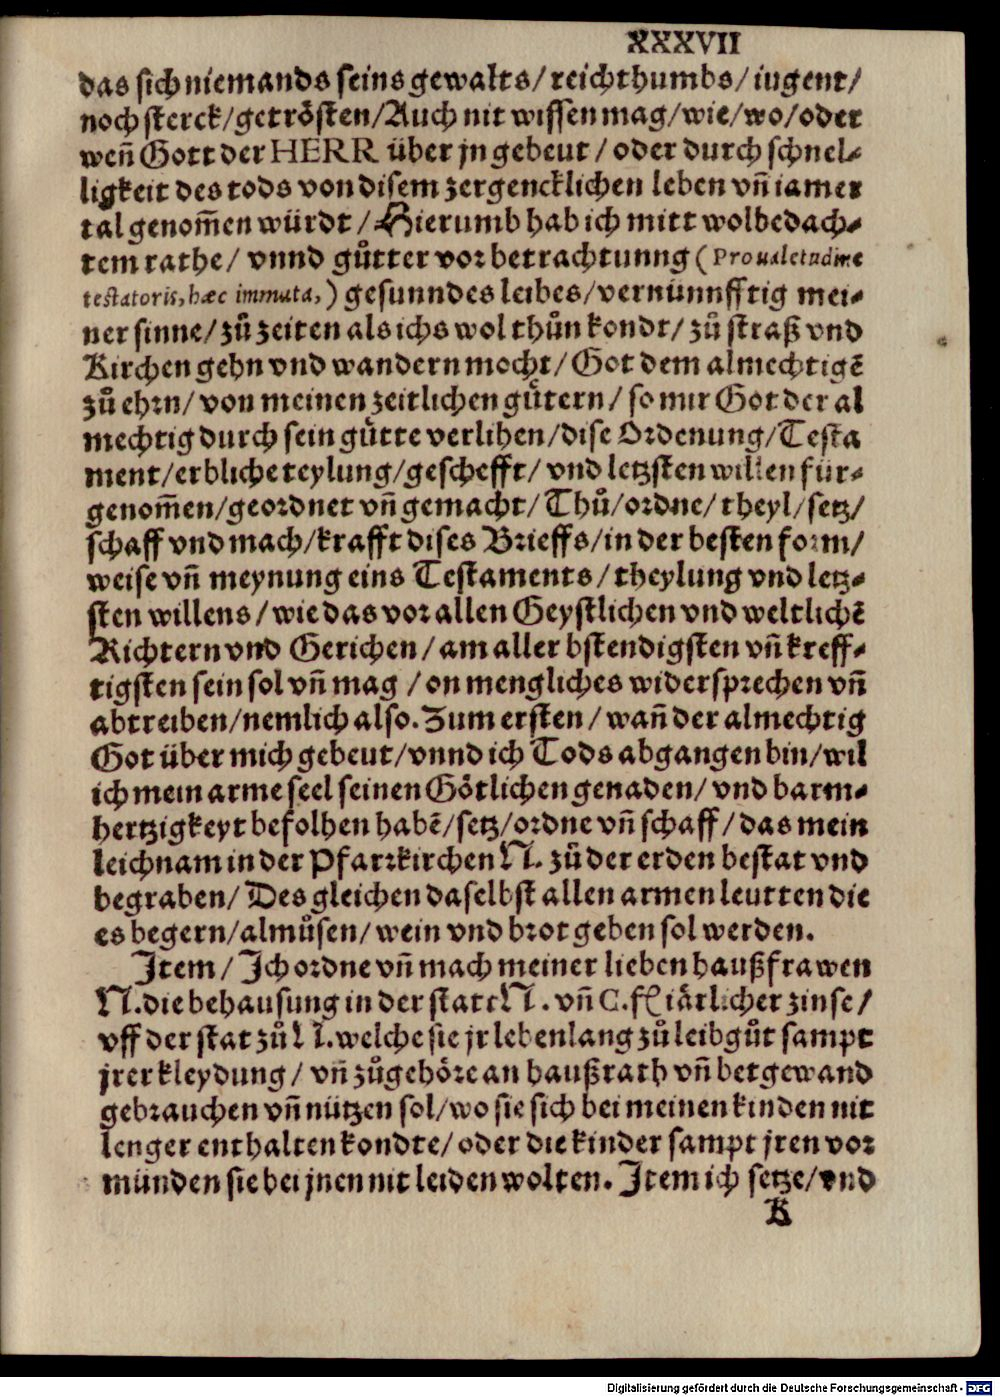 XXXVII
das sich niemands seins gewalts/ reichthumbs/ iugent/
noch sterck/ getrösten/ Auch nit wissen mag/ wie/ wo/ oder
weñ Gott der HERR über jn gebeut / oder durch schnel-
ligkeit des tods von disem zergencklichen leben vñ iamer
tal genom̃en würdt / Hierumb hab ich mitt wolbedach-
tem rathe/ vnnd gůtter vor betrachtunng ( Pro ualetudine
testatoris, hæc immuta, ) gesunndes leibes/ vernünnfftig mei-
ner sinne/ zů zeiten als ichs wol thůn kondt/ zů straß vnd
Kirchen gehn vnd wandern mocht/ Got dem almechtigē
zů ehrn/ von meinen zeitlichen gůtern/ so mir Got der al
mechtig durch sein gůtte verlihen/ dise Ordenung/ Testa
ment/ erbliche teylung/ geschefft/ vnd letzsten willen für-
genom̃en/ geordnet vñ gemacht/ Thů/ ordne/ theyl/ setz/
schaff vnd mach/ krafft dises Brieffs/ in der besten form/
weise vñ meynung eins Testaments/ theylung vnd letz-
sten willens/ wie das vor allen Geystlichen vnd weltlichē
Richtern vnd Gerichen/ am aller bstendigsten vñ kreff-
tigsten sein sol vñ mag / on mengliches widersprechen vñ
abtreiben/ nemlich also. Zum ersten/ wañ der almechtig
Got über mich gebeut/ vnnd ich Tods abgangen bin/ wil
ich mein arme seel seinen Götlichen genaden/ vnd barm-
hertzigkeyt befolhen habē/ setz/ ordne vñ schaff/ das mein
leichnam in der Pfarrkirchen N. zů der erden bestat vnd
begraben/ Des gleichen daselbst allen armen leutten die
es begern/ almůsen/ wein vnd brot geben sol werden.
Item/ Ich ordne vñ mach meiner lieben haußfrawen
N. die behausung in der statt N. vñ C. fl iärlicher zinse/
vff der stat zů N. welche sie jr lebenlang zů leibgůt sampt
jrer kleydung/ vñ zůgehöre an haußrath vñ betgewand
gebrauchen vñ nützen sol/ wo sie sich bei meinen kinden nit
lenger enthalten kondte/ oder die kinder sampt jren vor
münden sie bei jnen nit leiden wolten. Item ich setze/ vnd
K
Digitalisierung gefördert durch die Deutsche Forschungsgemeinschaft - DFG